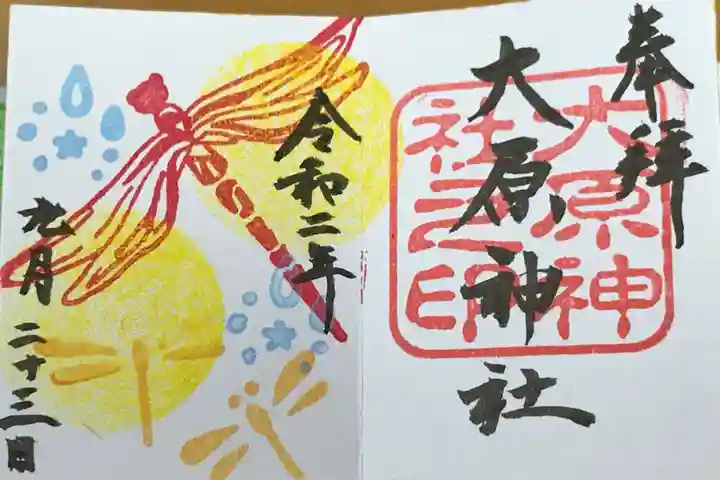 奉拝
大原神社
大原神社之印
令和二年
九月二十三日